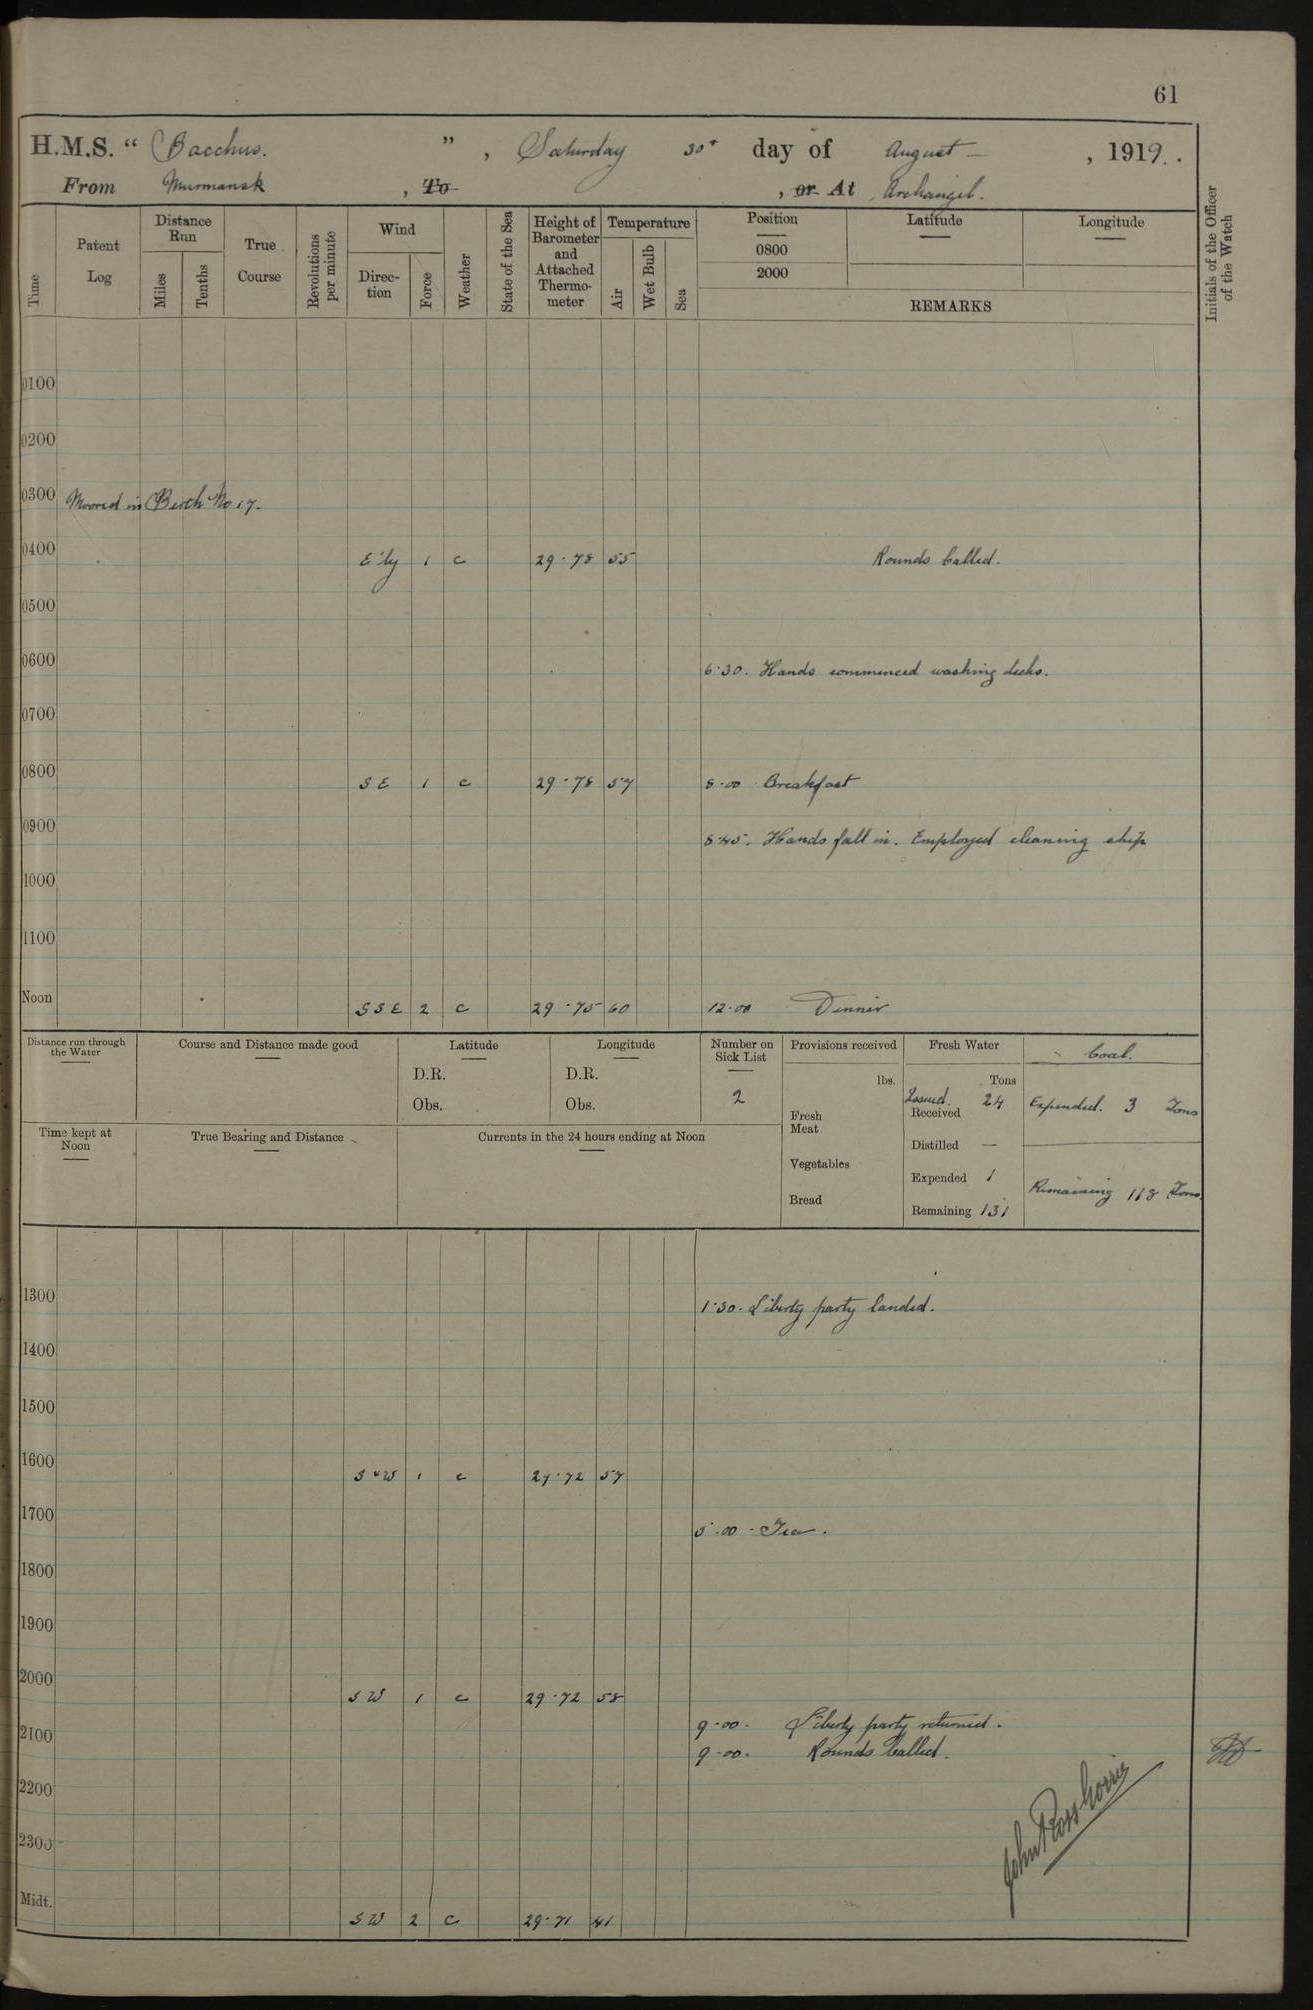 61
H.M.S. “ Bacchus. ” , Saturday 30th day of August — , 1919.
From Murmansk , To , or At Archangel.
Time
Patent Log
Distance Run
Miles
Tenths
True Course
Revolutions per minute
Wind
Direction
Force
Weather
State of the Sea
Height of Barometer and Attached Thermometer
Temperature
Air
Wet Bulb
Sea
Position
0800
2000
Latitude
Longitude
REMARKS
Initials of the Officer of the Watch
0100
0200
0300 Moored in Berth No 17.
0400 E'ly 1 c 29.78 55 Rounds Called.
0500
0600 6.30. Hands commenced washing decks.
0700
0800 SE 1 c 29.78 57 8.00 Breakfast
0900 8.45. Hands fall in. Employed cleaning ship
1000
1100
Noon SSE 2 c 29.75 60 12.00 Dinner
Distance run through the Water
Course and Distance made good
Latitude
D.R.
Obs.
Longitude
D.R.
Obs.
Number on Sick List
2
Provisions received
lbs.
Fresh Meat
Vegetables
Bread
Fresh Water
Tons
Issued. 24
Received
Distilled —
Expended 1
Remaining 131
Coal.
Expended. 3 Tons
Remaining 118 Tons.
Time kept at Noon
True Bearing and Distance
Currents in the 24 hours ending at Noon
1300 1.30. Liberty party landed.
1400
1500
1600 1 c 29.72 57
1700 5.00 - Tea.
1800
1900
2000 SW 1 c 29.72 58
2100 9.00. Liberty party returned.
9.00. Rounds Called.
2200
2300
Midt. SW 2 c 29.71 41